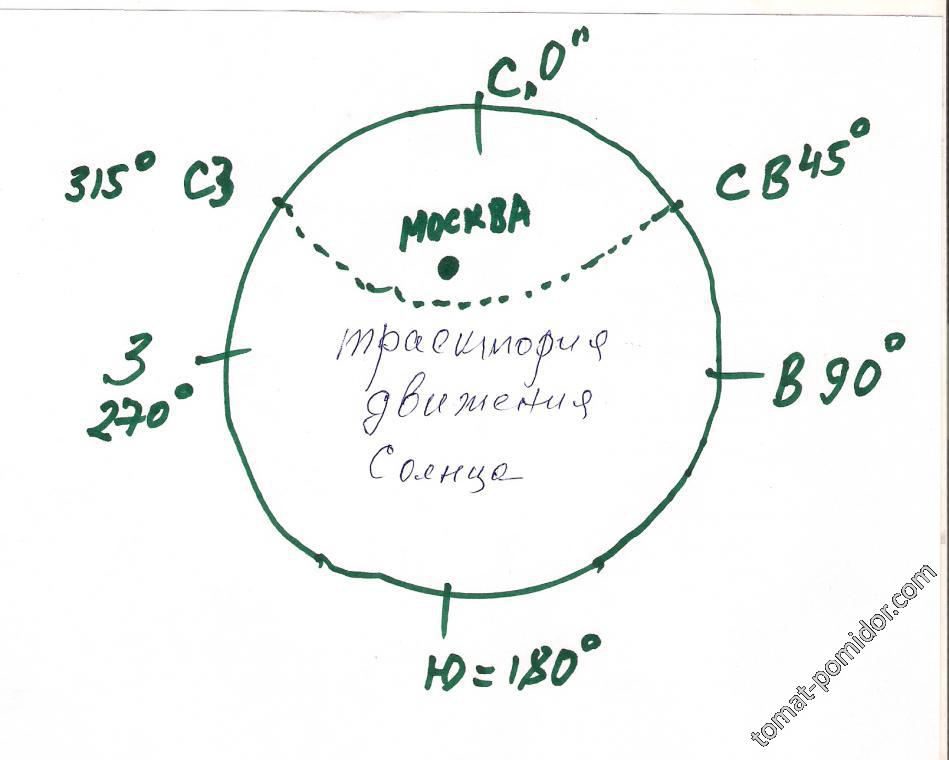 С, 0"
315° СЗ
СВ 45°
МОСКВА
З
270°
В 90°
траектория
движения
Солнца
Ю = 180°
tomat-pomidor.com